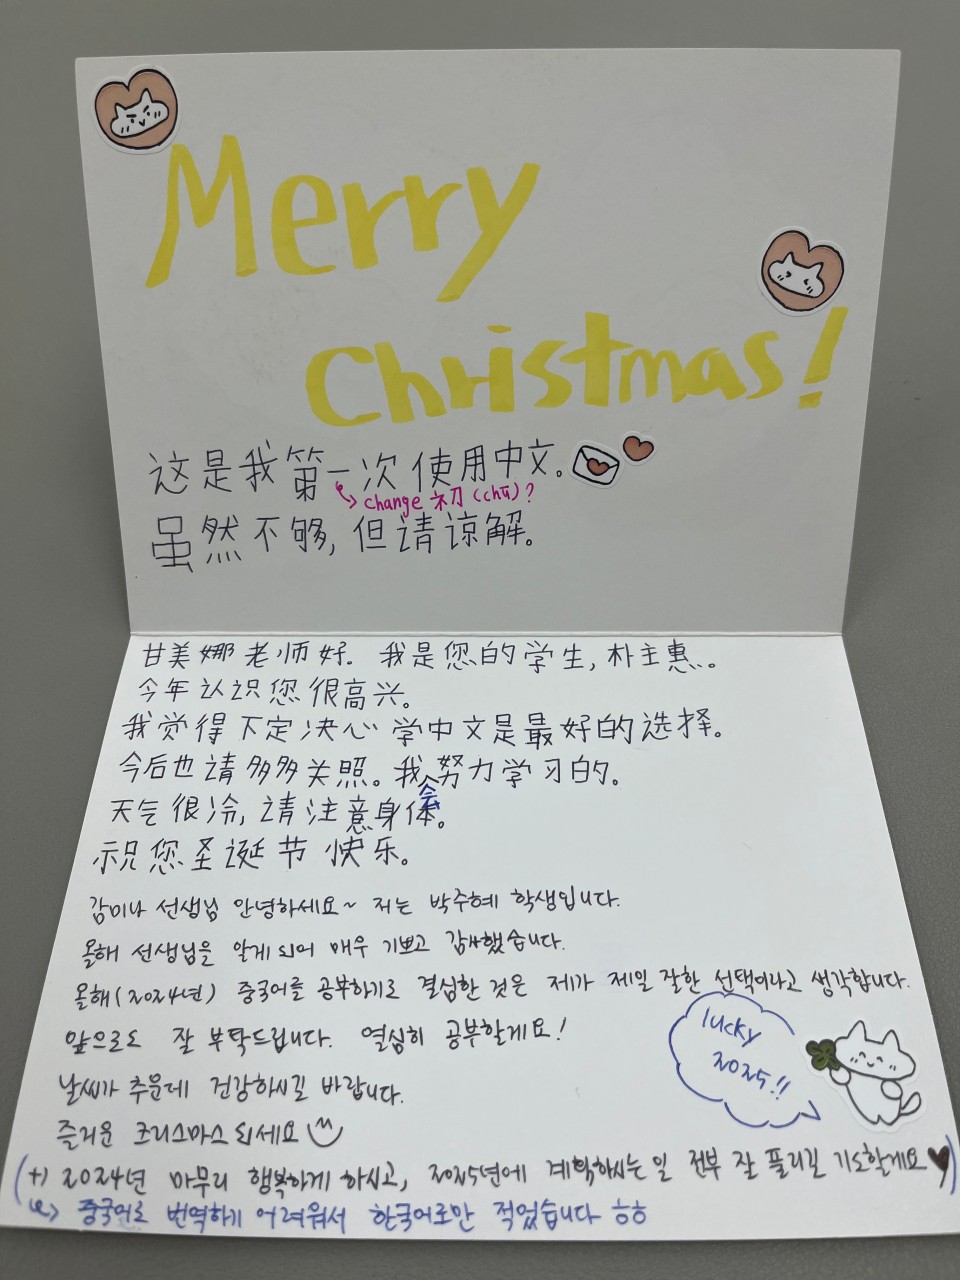 Merry
Christmas!
这是我第一次使用中文。
↳ change 初 (chū)?
虽然不够, 但请谅解。
甘美娜老师好. 我是您的学生, 朴主惠。
今年认识您很高兴。
我觉得下定决心学中文是最好的选择。
今后也请多多关照。我会努力学习的。
天气很冷, 请注意身体。
祝您圣诞节快乐。
감미나 선생님 안녕하세요~ 저는 박주혜 학생입니다.
올해 선생님을 알게 되어 매우 기쁘고 감사했습니다.
올해(2024년) 중국어를 공부하기로 결심한 것은 제가 제일 잘한 선택이라고 생각합니다.
앞으로도 잘 부탁드립니다. 열심히 공부할게요!
lucky
2025!!
날씨가 추운데 건강하시길 바랍니다.
즐거운 크리스마스 되세요
(+) 2024년 마무리 행복하게 하시고, 2025년에 계획하시는 일 전부 잘 풀리길 기도할게요♥)
↳ 중국어로 번역하기 어려워서 한국어로만 적었습니다 ㅎㅎ